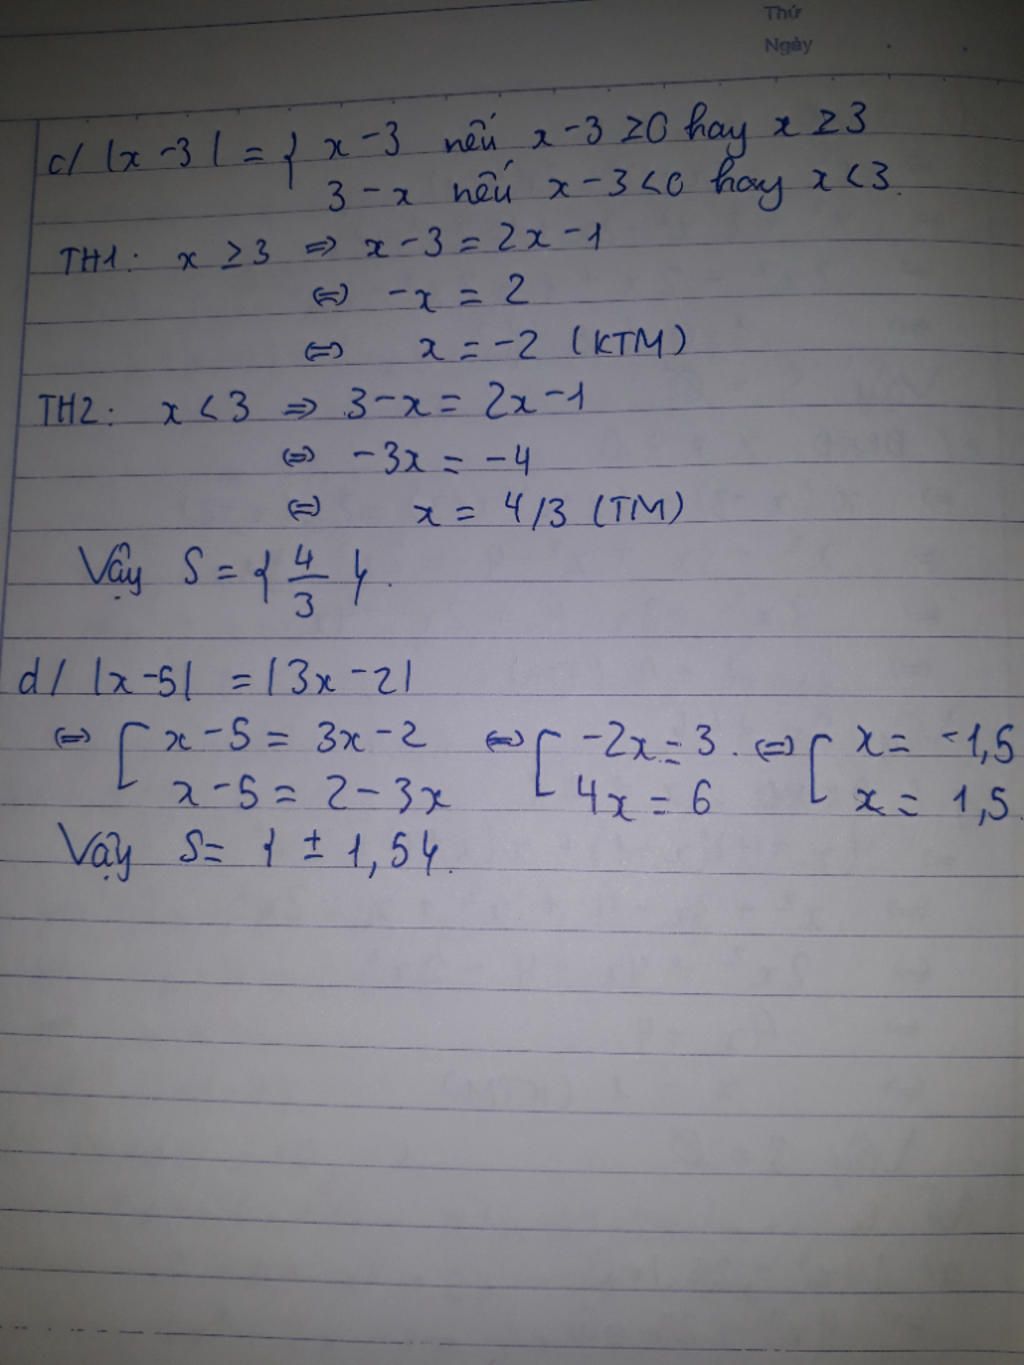 Thứ
Ngày
c/ |x-3| = { x-3 nếu x-3≥0 hay x≥3
3-x nếu x-3<0 hay x<3.
TH1: x≥3 ⇒ x-3 = 2x-1
⇔ -x = 2
⇔ x = -2 (KTM)
TH2: x<3 ⇒ 3-x = 2x-1
⇔ -3x = -4
⇔ x = 4/3 (TM)
Vậy S = { 4/3 }.
d/ |x-5| = |3x-2|
⇔ [ x-5 = 3x-2 ⇔ [ -2x = 3. ⇔ [ x = -1,5
x-5 = 2-3x 4x = 6 x = 1,5.
Vậy S = { ± 1,5 }.